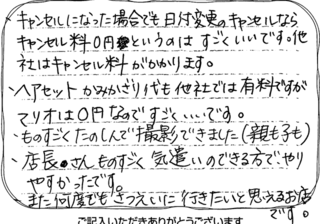 キャンセルになった場合でも日付変更のキャンセルなら
キャンセル料0円というのはすごくいいです。他
社はキャンセル料がかかります。
・ヘアセットかみかざり代も他社では有料ですが
てリオは0円なのですごくいいです。
・ものすごくたのしんで撮影できました(親も子も)
・店長さんものすごく気遣いのできる方でやり
やすかったです。
また何度でもさつえいに行きたいと思えるお店
です。
ご記入いただきありがとうございます